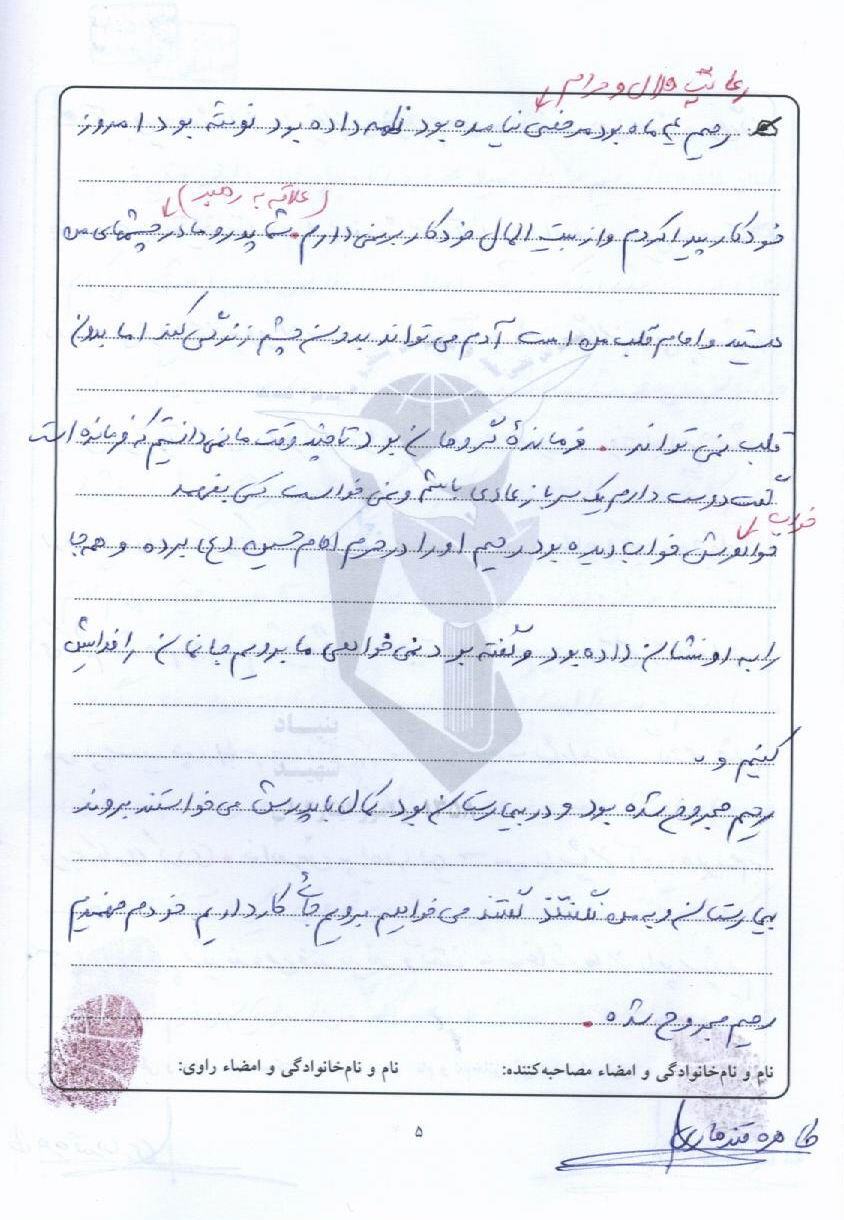 رعایت حلال و حرام
رحیم ماه بود مرخصی نیامده بود نامه داده بود نوشته بود امروز
(علاقه به رهبر)
خودکار پیدا کردم و از بیت المال خودکار برنمی دارم. شما پدر و مادر چشمهای من
هستید و امام قلب من است آدم می تواند بدون چشم زندگی کند اما بدون
قلب نمی تواند. فرماندهٔ گروهان بود تا چند وقت ما نمی دانستیم که فرمانده است
گفت دوست دارم یک سرباز عادی باشم و نمی خواست کسی بفهمد
خواب
خواهرش خواب دیده بود رحیم او را در حرم امام حسین (ع) برده و همه جا
را به او نشان داده بود و گفته بود نمی خواهی ما برویم جانمان را فدایش
کنیم و
رحیم مجروح شده بود و در بیمارستان بود کمال با پدرش می خواستند بروند
بیمارستان و به من نگفتند گفتند می خواهیم برویم جائی کار داریم خودم فهمیدم
رحیم مجروح شده.
بنیاد
شهید
نام و نام‌خانوادگی و امضاء مصاحبه‌کننده: نام و نام‌خانوادگی و امضاء راوی:
۵
طاهره